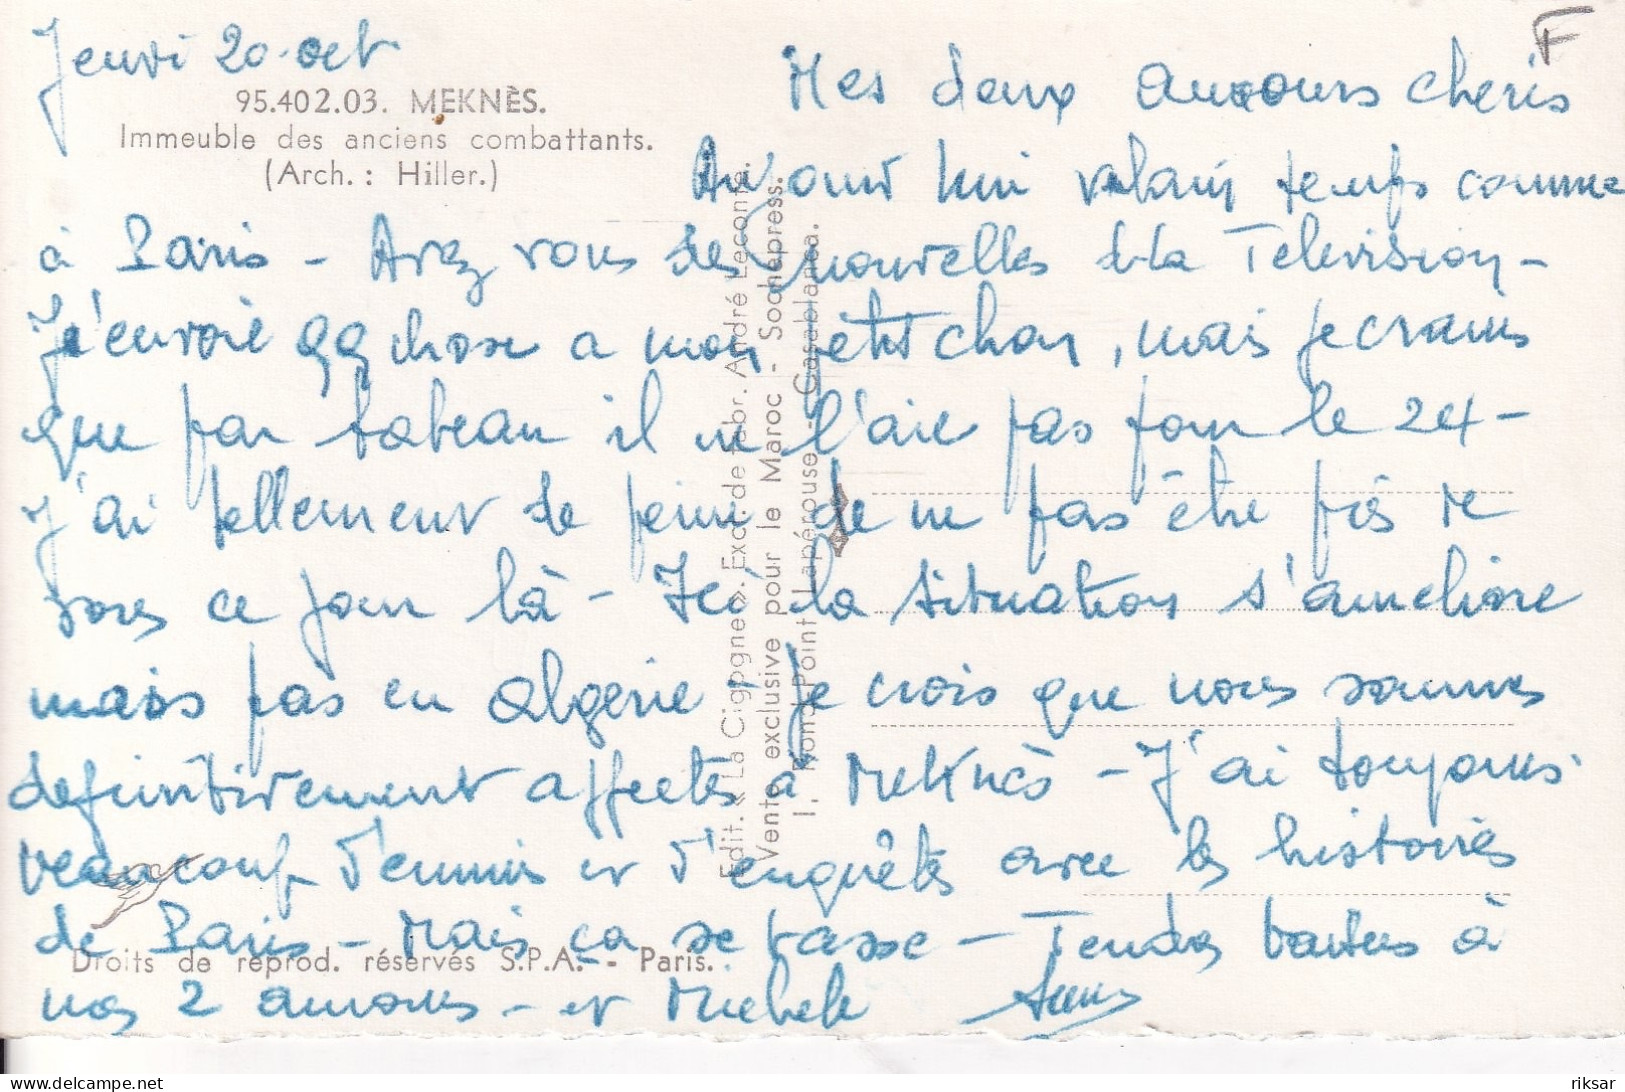 Jeudi 20 oct
95.402.03. MEKNÈS.
Immeuble des anciens combattants.
(Arch. : Hiller.)
F
Mes deux amours cheris
Au'ourd hui vilain temps comme
à Paris - Avez vous des nouvelles d la Television -
J'envoie qq chose a mon petit chou, mais je crains
que par bateau il ne l'aie pas pour le 24 -
J'ai tellement de peine de ne pas être près de
vous ce jour là - Ici la situation s'améliore
mais pas en Algerie - Je crois que nous sommes
definitivement affectés à Meknès - J'ai toujours
beaucoup d'ennuis et d'enquêtes avec les histoires
de Paris - Mais ça se tasse - Tendres baisers à
nos 2 amours - et Michele
Edit. « La Cigogne ». Excl. de fabr. André Leconte.
Vente exclusive pour le Maroc - Sochepress.
1, Rond-Point Lapérouse - Casablanca.
Droits de reprod. réservés S.P.A. - Paris.
riksar